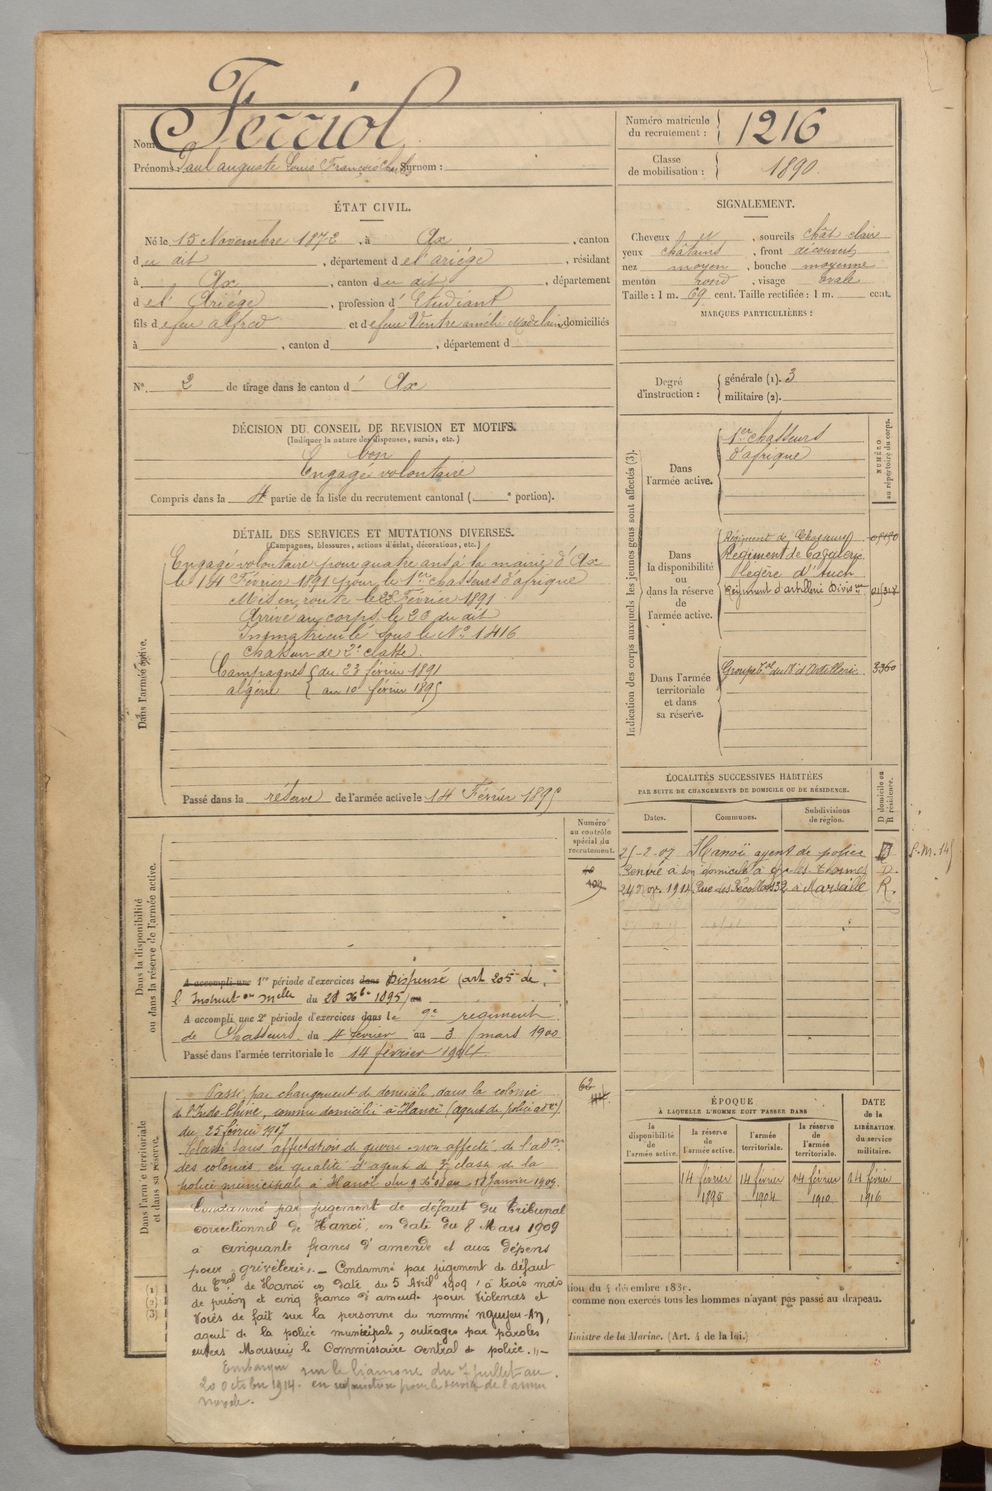 Ferriol
Nom
Prénoms : Paul auguste Louis François Surnom :
Numéro matricule du recrutement : 1216
Classe de mobilisation : 1890
ÉTAT CIVIL.
Né le 15 Novembre 1872, à Ax, canton
du dit, département de l'ariège, résidant
à Ax, canton du dit, département
de l'Ariège, profession d'Etudiant
fils de feu alfred et de feue Ventre domiciliés
à , canton d , département d
N° 2 de tirage dans le canton d' Ax
SIGNALEMENT.
Cheveux et , sourcils chât clair
yeux châtains , front découvert
nez moyen , bouche moyenne
menton rond , visage ovale
Taille : 1 m. 69 cent. Taille rectifiée : 1 m. cent.
MARQUES PARTICULIÈRES :
Degré d'instruction : générale (1). 3
militaire (2).
DÉCISION DU CONSEIL DE REVISION ET MOTIFS.
(Indiquer la nature des dispenses, sursis, etc.)
bon
Engagé volontaire
Compris dans la 4e partie de la liste du recrutement cantonal ( e portion).
DÉTAIL DES SERVICES ET MUTATIONS DIVERSES.
(Campagnes, blessures, actions d'éclat, décorations, etc.)
Dans l'armée active.
Engagé volontaire pour quatre ans à la mairie d'Ax
le 14 Février 1891 pour le 1er chasseurs d'afrique
Mis en route le Février 1891
Arrivé au corps le 20 du dit
Immatriculé sous le N° 1416
Chasseur de 2e classe.
Campagnes du 23 février 1891
algérie au 10 février 1895
Passé dans la réserve de l'armée active le 14 Février 1895
Indication des corps auxquels les jeunes gens sont affectés (3).
NUMÉRO au répertoire du corps.
Dans l'armée active.
1er chasseurs
d'afrique
Dans la disponibilité ou dans la réserve de l'armée active.
Régiment de Chasseurs
Régiment de Cavalerie
légère d'Auch
Régiment d'artillerie Divisre
Dans l'armée territoriale et dans sa réserve.
Groupe du 18e d'Artillerie 3360
LOCALITÉS SUCCESSIVES HABITÉES
PAR SUITE DE CHANGEMENTS DE DOMICILE OU DE RÉSIDENCE.
D domicile ou R résidence.
Dates. Communes. Subdivisions de région.
25-2-07 Hanoï agent de police D
Rentré à son domicile à Ax les Thermes D.
24 1914 Rue des Récollettes 32 à Marseille R.
Numéro au contrôle spécial du recrutement.
Dans la disponibilité ou dans la réserve de l'armée active.
A accompli une 1re période d'exercices dans Dispensé (art. 205 de
l'Instruct on Melle du 28 Xbre 1895) au
A accompli une 2e période d'exercices dans le 9e régiment
de Chasseurs du 4 février au 3 mars 1900
Passé dans l'armée territoriale le 14 février 1904
62
Dans l'armée territoriale et dans sa réserve.
Passé, par changement de domicile, dans la colonie
de l'Indo-Chine, comme domicilié à Hanoï (agent de police)
du 25 février 1907
Classé sans affectation de guerre, non affecté, de l'
des colonies en qualité d'agent de classe de la
police municipale à Hanoï 18 Janvier 1909.
Condamné par jugement de défaut du Tribunal
correctionnel de Hanoï, en date du 8 Mars 1909
à cinquante francs d'amende et aux dépens
pour "grivèlerie". Condamné par jugement de défaut
du Bnal de Hanoï en date du 5 Avril 1909 à trois mois
de prison et cinq francs d'amende pour violences et
voies de fait sur la personne du nommé nguyen-An,
agent de la police municipale, outrages par paroles
envers Monsieur le Commissaire central de police.
Embarqué sur le liamone du 7 juillet au
20 octobre 1914. en réquisition pour le service de l'armée
navale.
ÉPOQUE
À LAQUELLE L'HOMME DOIT PASSER DANS
DATE de la LIBÉRATION du service militaire.
la disponibilité de l'armée active.
la réserve de l'armée active.
l'armée territoriale.
la réserve de l'armée territoriale.
14 février 1895
14 février 1904
14 février 1910
14 février 1916
tion du 4 décembre 1889.
comme non exercés tous les hommes n'ayant pas passé au drapeau.
Ministre de la Marine. (Art. 4 de la loi.)
(1)
(2)
(3)